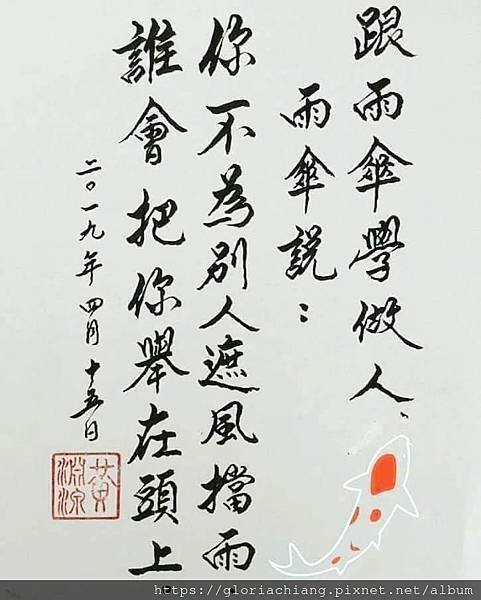 跟雨傘學做人、
雨傘說：
你不為別人遮風擋雨
誰會把你舉在頭上
二〇一九年四月十五日
黃
淵源
https://gloriachiang.pixnet.net/album